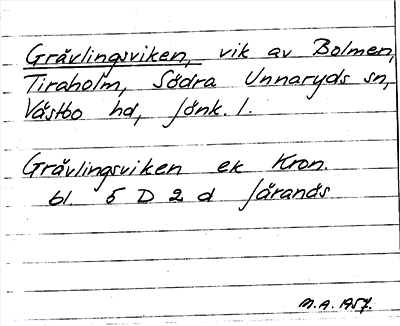 Grävlingsviken, vik av Bolmen,
Tiraholm, Södra Unnaryds sn,
Västbo hd, Jönk. l.
Grävlingsviken ek Kron.
bl. 5 D 2 d Järanäs
M.A. 1957.